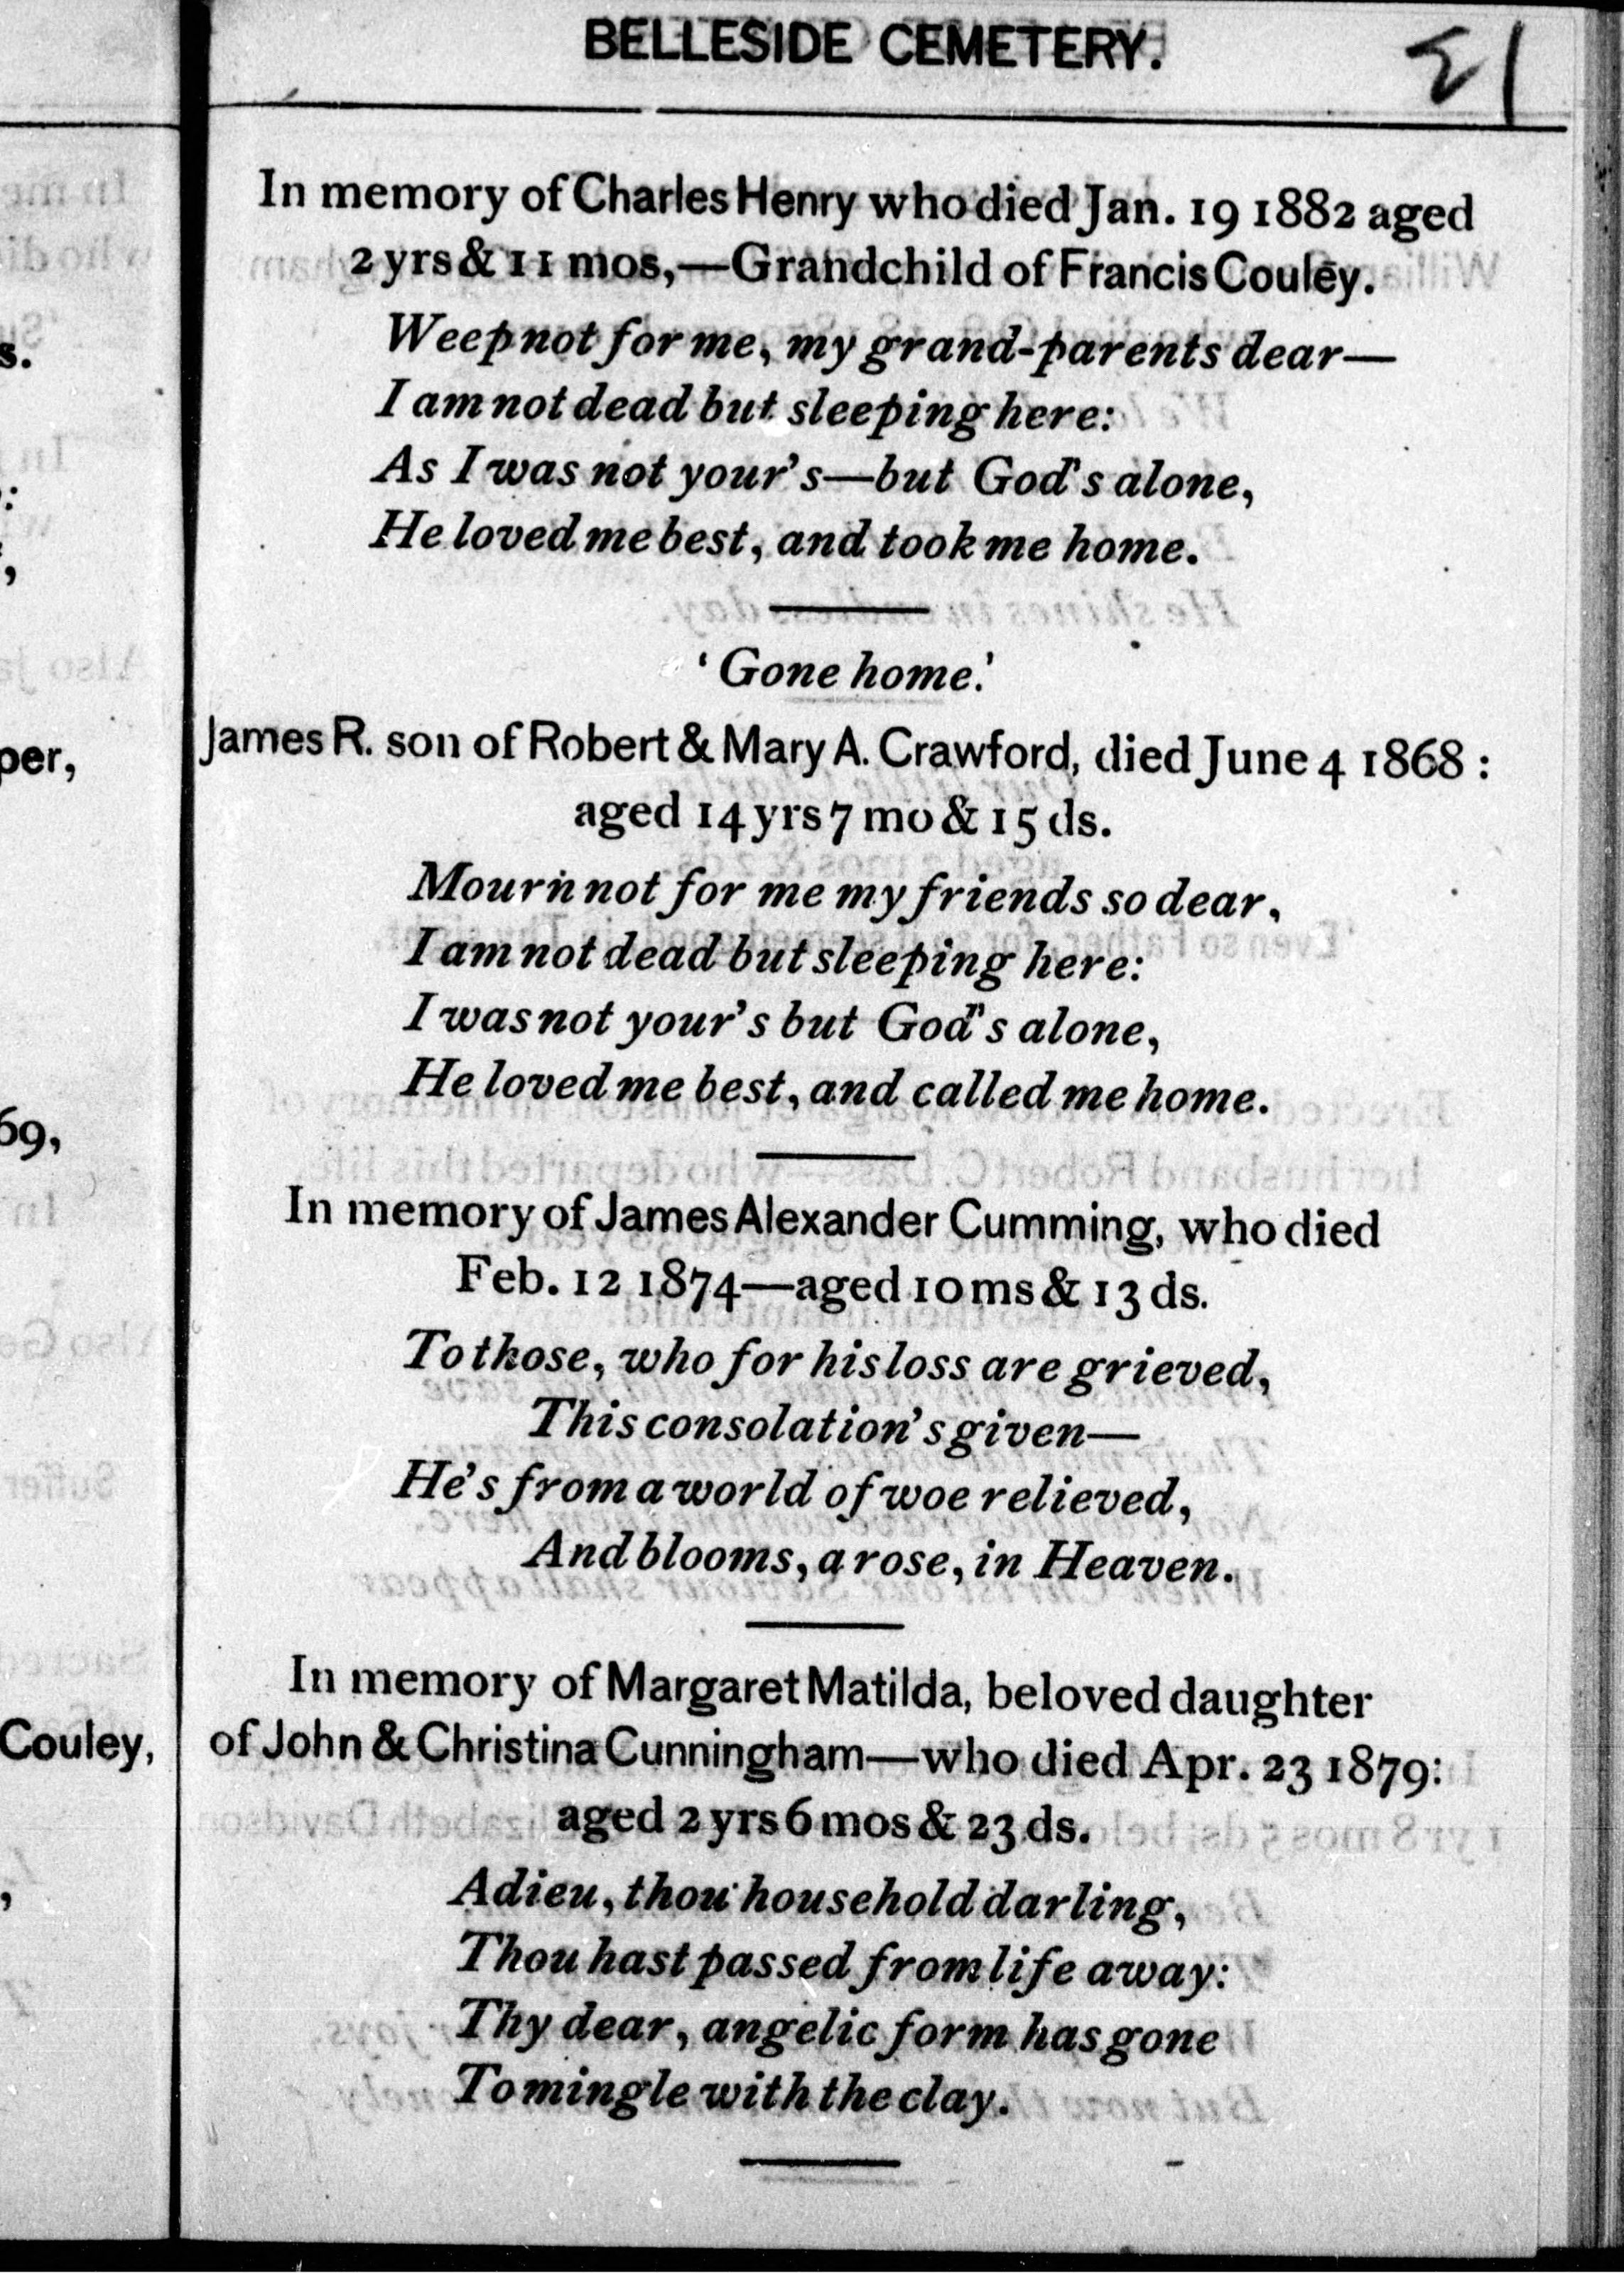 BELLESIDE CEMETERY.
In memory of Charles Henry who died Jan. 19 1882 aged
2 yrs & 11 mos,—Grandchild of Francis Couley.
Weep not for me, my grand-parents dear—
I am not dead but sleeping here:
As I was not your's—but God's alone,
He loved me best, and took me home.
'Gone home.'
James R. son of Robert & Mary A. Crawford, died June 4 1868 :
aged 14 yrs 7 mo & 15 ds.
Mourn not for me my friends so dear,
I am not dead but sleeping here:
I was not your's but God's alone,
He loved me best, and called me home.
In memory of James Alexander Cumming, who died
Feb. 12 1874—aged 10 ms & 13 ds.
To those, who for his loss are grieved,
This consolation's given—
He's from a world of woe relieved,
And blooms, a rose, in Heaven.
In memory of Margaret Matilda, beloved daughter
of John & Christina Cunningham—who died Apr. 23 1879:
aged 2 yrs 6 mos & 23 ds.
Adieu, thou household darling,
Thou hast passed from life away:
Thy dear, angelic form has gone
To mingle with the clay.
Couley,